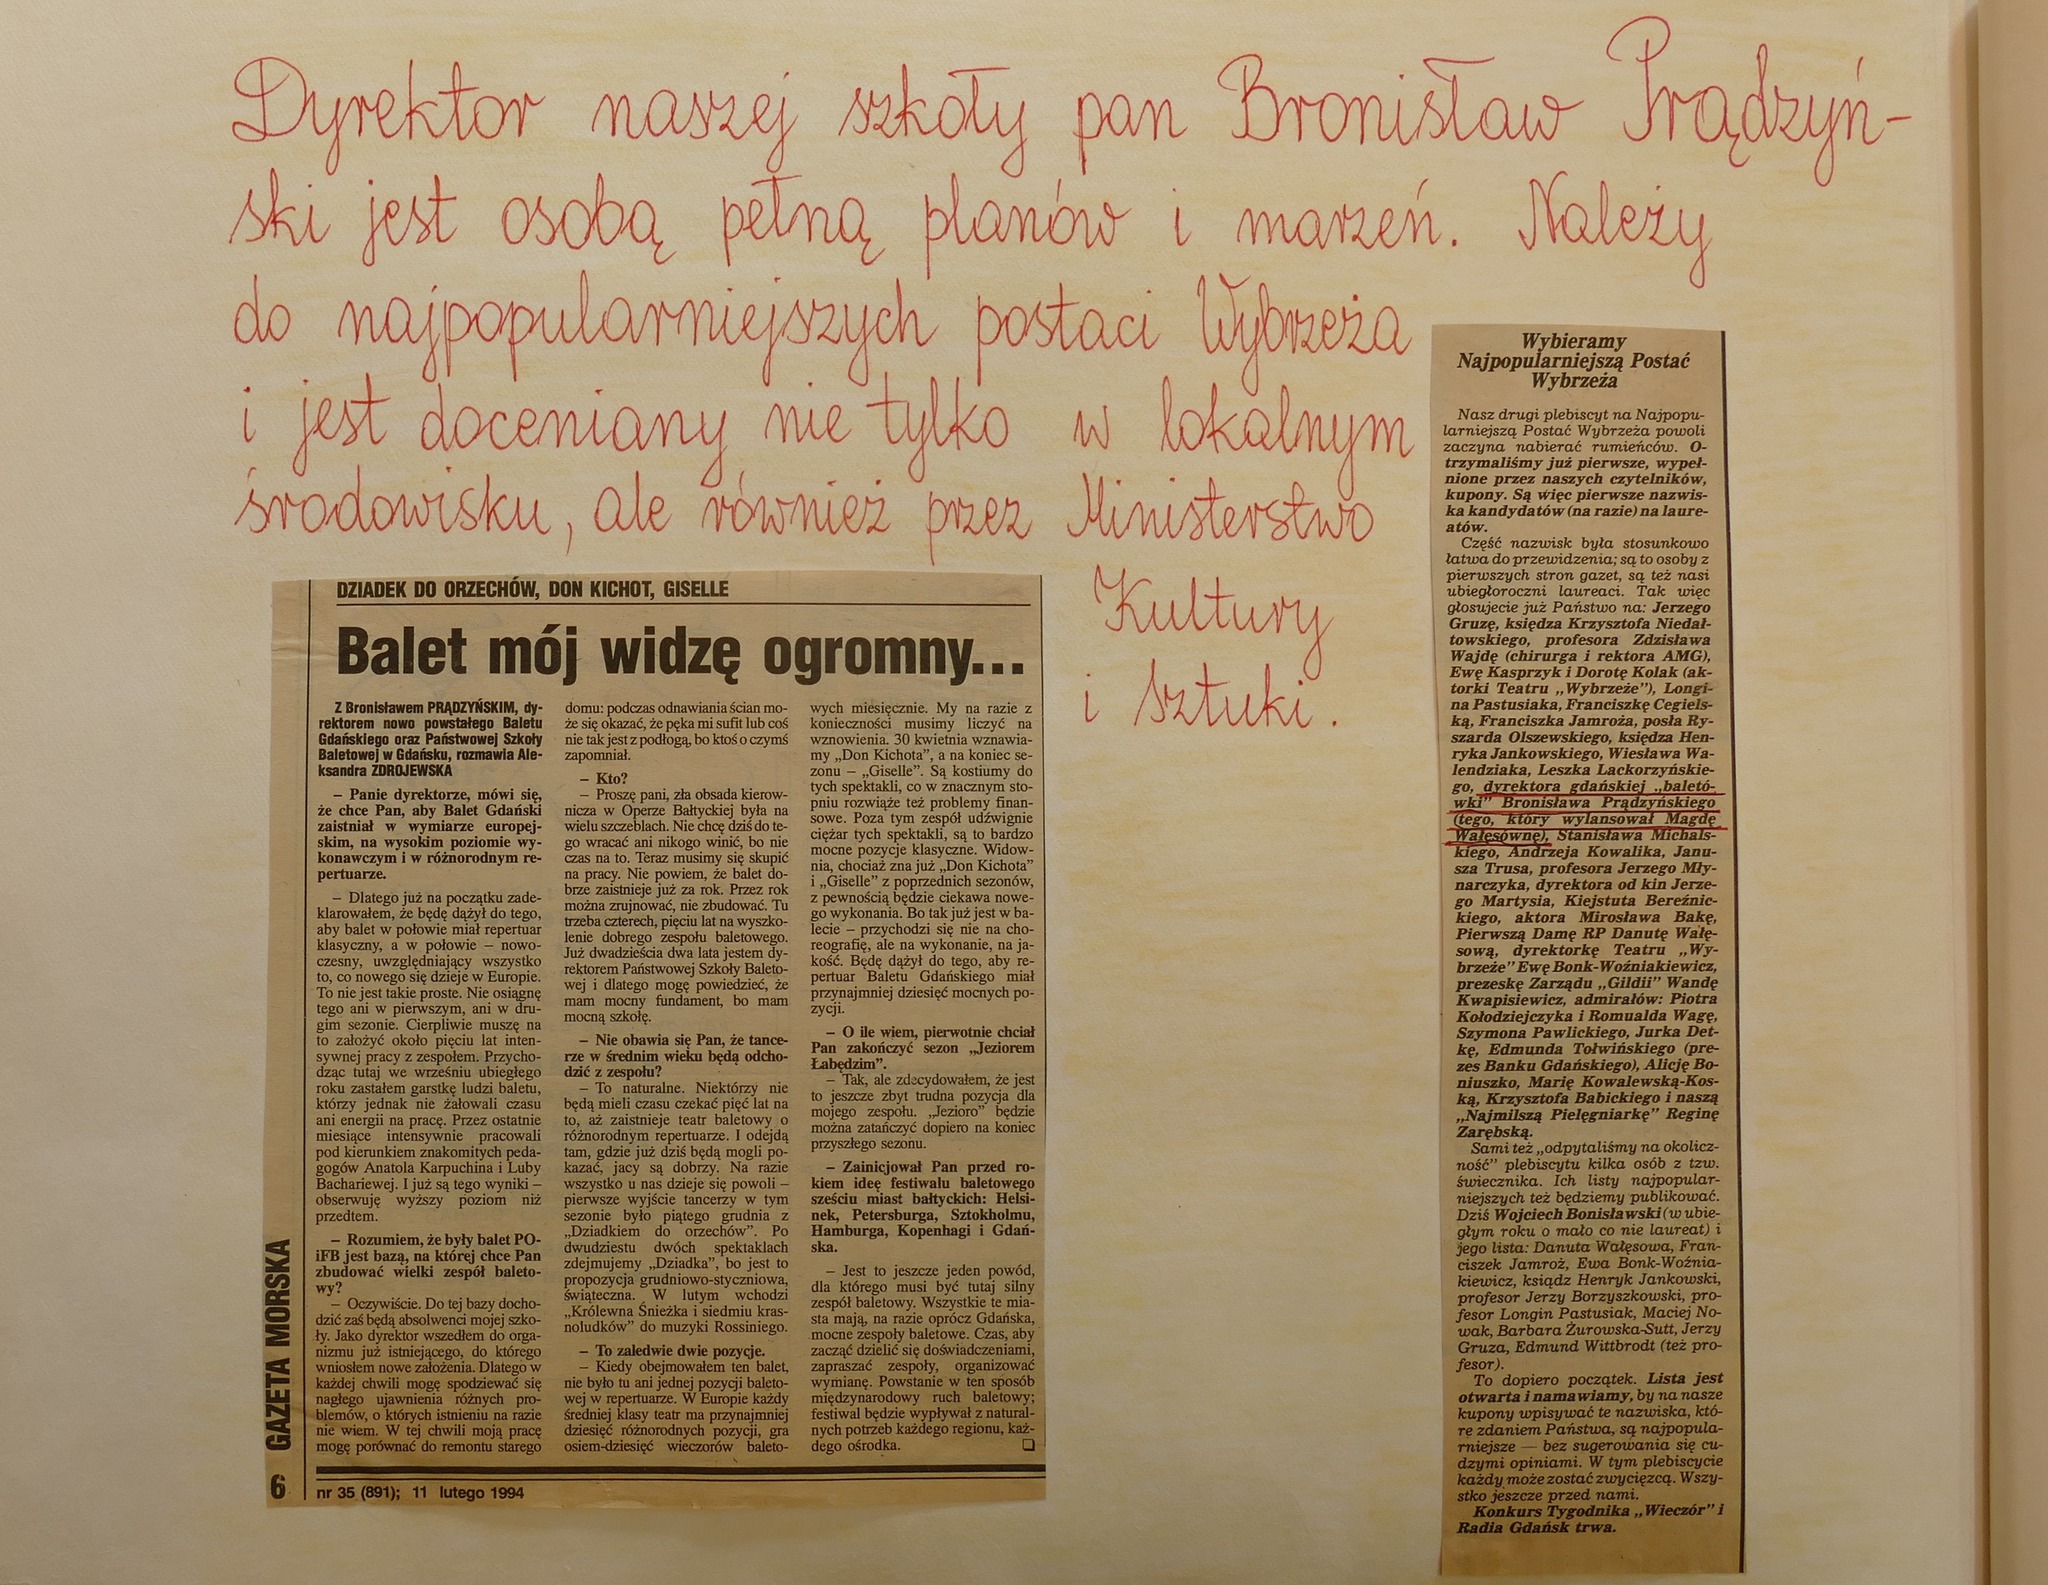 Dyrektor naszej szkoły pan Bronisław Prądzyń-
ski jest osobą pełną planów i marzeń. Należy
do najpopularniejszych postaci Wybrzeża
i jest doceniany nie tylko w lokalnym
środowisku, ale również przez Ministerstwo
Kultury
i Sztuki.
DZIADEK DO ORZECHÓW, DON KICHOT, GISELLE
Balet mój widzę ogromny...
Z Bronisławem PRĄDZYŃSKIM, dy-
rektorem nowo powstałego Baletu
Gdańskiego oraz Państwowej Szkoły
Baletowej w Gdańsku, rozmawia Ale-
ksandra ZDROJEWSKA
– Panie dyrektorze, mówi się,
że chce Pan, aby Balet Gdański
zaistniał w wymiarze europej-
skim, na wysokim poziomie wy-
konawczym i w różnorodnym re-
pertuarze.
– Dlatego już na początku zade-
klarowałem, że będę dążył do tego,
aby balet w połowie miał repertuar
klasyczny, a w połowie – nowo-
czesny, uwzględniający wszystko
to, co nowego się dzieje w Europie.
To nie jest takie proste. Nie osiągnę
tego ani w pierwszym, ani w dru-
gim sezonie. Cierpliwie muszę na
to założyć około pięciu lat inten-
sywnej pracy z zespołem. Przycho-
dząc tutaj we wrześniu ubiegłego
roku zastałem garstkę ludzi baletu,
którzy jednak nie żałowali czasu
ani energii na pracę. Przez ostatnie
miesiące intensywnie pracowali
pod kierunkiem znakomitych peda-
gogów Anatola Karpuchina i Luby
Bachariewej. I już są tego wyniki –
obserwuję wyższy poziom niż
przedtem.
– Rozumiem, że były balet PO-
iFB jest bazą, na której chce Pan
zbudować wielki zespół baleto-
wy?
– Oczywiście. Do tej bazy docho-
dzić zaś będą absolwenci mojej szko-
ły. Jako dyrektor wszedłem do orga-
nizmu już istniejącego, do którego
wniosłem nowe założenia. Dlatego w
każdej chwili mogę spodziewać się
nagłego ujawnienia różnych pro-
blemów, o których istnieniu na razie
nie wiem. W tej chwili moją pracę
mogę porównać do remontu starego
domu: podczas odnawiania ścian mo-
że się okazać, że pęka mi sufit lub coś
nie tak jest z podłogą, bo ktoś o czymś
zapomniał.
– Kto?
– Proszę pani, zła obsada kierow-
nicza w Operze Bałtyckiej była na
wielu szczeblach. Nie chcę dziś do te-
go wracać ani nikogo winić, bo nie
czas na to. Teraz musimy się skupić
na pracy. Nie powiem, że balet do-
brze zaistnieje już za rok. Przez rok
można zrujnować, nie zbudować. Tu
trzeba czterech, pięciu lat na wyszko-
lenie dobrego zespołu baletowego.
Już dwadzieścia dwa lata jestem dy-
rektorem Państwowej Szkoły Baleto-
wej i dlatego mogę powiedzieć, że
mam mocny fundament, bo mam
mocną szkołę.
– Nie obawia się Pan, że tance-
rze w średnim wieku będą odcho-
dzić z zespołu?
– To naturalne. Niektórzy nie
będą mieli czasu czekać pięć lat na
to, aż zaistnieje teatr baletowy o
różnorodnym repertuarze. I odejdą
tam, gdzie już dziś będą mogli po-
kazać, jacy są dobrzy. Na razie
wszystko u nas dzieje się powoli –
pierwsze wyjście tancerzy w tym
sezonie było piątego grudnia z
„Dziadkiem do orzechów”. Po
dwudziestu dwóch spektaklach
zdejmujemy „Dziadka”, bo jest to
propozycja grudniowo-styczniowa,
świąteczna. W lutym wchodzi
„Królewna Śnieżka i siedmiu kras-
noludków” do muzyki Rossiniego.
– To zaledwie dwie pozycje.
– Kiedy obejmowałem ten balet,
nie było tu ani jednej pozycji baleto-
wej w repertuarze. W Europie każdy
średniej klasy teatr ma przynajmniej
dziesięć różnorodnych pozycji, gra
osiem-dziesięć wieczorów baleto-
wych miesięcznie. My na razie z
konieczności musimy liczyć na
wznowienia. 30 kwietnia wznawia-
my „Don Kichota”, a na koniec se-
zonu – „Giselle”. Są kostiumy do
tych spektakli, co w znacznym sto-
pniu rozwiąże też problemy finan-
sowe. Poza tym zespół udźwignie
ciężar tych spektakli, są to bardzo
mocne pozycje klasyczne. Widow-
nia, chociaż zna już „Don Kichota”
i „Giselle” z poprzednich sezonów,
z pewnością będzie ciekawa nowe-
go wykonania. Bo tak już jest w ba-
lecie – przychodzi się nie na cho-
reografię, ale na wykonanie, na ja-
kość. Będę dążył do tego, aby re-
pertuar Baletu Gdańskiego miał
przynajmniej dziesięć mocnych po-
zycji.
– O ile wiem, pierwotnie chciał
Pan zakończyć sezon „Jeziorem
Łabędzim”.
– Tak, ale zdecydowałem, że jest
to jeszcze zbyt trudna pozycja dla
mojego zespołu. „Jezioro” będzie
można zatańczyć dopiero na koniec
przyszłego sezonu.
– Zainicjował Pan przed ro-
kiem ideę festiwalu baletowego
sześciu miast bałtyckich: Helsi-
nek, Petersburga, Sztokholmu,
Hamburga, Kopenhagi i Gdań-
ska.
– Jest to jeszcze jeden powód,
dla którego musi być tutaj silny
zespół baletowy. Wszystkie te mia-
sta mają, na razie oprócz Gdańska,
mocne zespoły baletowe. Czas, aby
zacząć dzielić się doświadczeniami,
zapraszać zespoły, organizować
wymianę. Powstanie w ten sposób
międzynarodowy ruch baletowy;
festiwal będzie wypływał z natural-
nych potrzeb każdego regionu, każ-
dego ośrodka.
6 GAZETA MORSKA
nr 35 (891); 11 lutego 1994
Wybieramy
Najpopularniejszą Postać
Wybrzeża
Nasz drugi plebiscyt na Najpopu-
larniejszą Postać Wybrzeża powoli
zaczyna nabierać rumieńców. O-
trzymaliśmy już pierwsze, wypeł-
nione przez naszych czytelników,
kupony. Są więc pierwsze nazwis-
ka kandydatów (na razie) na laure-
atów.
Część nazwisk była stosunkowo
łatwa do przewidzenia; są to osoby z
pierwszych stron gazet, są też nasi
ubiegłoroczni laureaci. Tak więc
głosujecie już Państwo na: Jerzego
Gruzę, księdza Krzysztofa Niedał-
towskiego, profesora Zdzisława
Wajdę (chirurga i rektora AMG),
Ewę Kasprzyk i Dorotę Kolak (ak-
torki Teatru „Wybrzeże”), Longi-
na Pastusiaka, Franciszkę Cegiels-
ką, Franciszka Jamroża, posła Ry-
szarda Olszewskiego, księdza Hen-
ryka Jankowskiego, Wiesława Wa-
lendziaka, Leszka Lackorzyńskie-
go, dyrektora gdańskiej „baletó-
wki” Bronisława Prądzyńskiego
(tego, który wylansował Magdę
Wałęsównę), Stanisława Michals-
kiego, Andrzeja Kowalika, Janu-
sza Trusa, profesora Jerzego Mły-
narczyka, dyrektora od kin Jerze-
go Martysia, Kiejstuta Bereźnic-
kiego, aktora Mirosława Bakę,
Pierwszą Damę RP Danutę Wałę-
sową, dyrektorkę Teatru „Wy-
brzeże” Ewę Bonk-Woźniakiewicz,
prezeskę Zarządu „Gildii” Wandę
Kwapisiewicz, admirałów: Piotra
Kołodziejczyka i Romualda Wagę,
Szymona Pawlickiego, Jurka Det-
kę, Edmunda Tołwińskiego (pre-
zes Banku Gdańskiego), Alicję Bo-
niuszko, Marię Kowalewską-Kos-
ką, Krzysztofa Babickiego i naszą
„Najmilszą Pielęgniarkę” Reginę
Zarębską.
Sami też „odpytaliśmy na okolicz-
ność” plebiscytu kilka osób z tzw.
świecznika. Ich listy najpopular-
niejszych też będziemy publikować.
Dziś Wojciech Bonisławski (w ubie-
głym roku o mało co nie laureat) i
jego lista: Danuta Wałęsowa, Fran-
ciszek Jamroż, Ewa Bonk-Woźnia-
kiewicz, ksiądz Henryk Jankowski,
profesor Jerzy Borzyszkowski, pro-
fesor Longin Pastusiak, Maciej No-
wak, Barbara Żurowska-Sutt, Jerzy
Gruza, Edmund Wittbrodt (też pro-
fesor).
To dopiero początek. Lista jest
otwarta i namawiamy, by na nasze
kupony wpisywać te nazwiska, któ-
re zdaniem Państwa, są najpopula-
rniejsze — bez sugerowania się cu-
dzymi opiniami. W tym plebiscycie
każdy może zostać zwycięzcą. Wszy-
stko jeszcze przed nami.
Konkurs Tygodnika „Wieczór” i
Radia Gdańsk trwa.